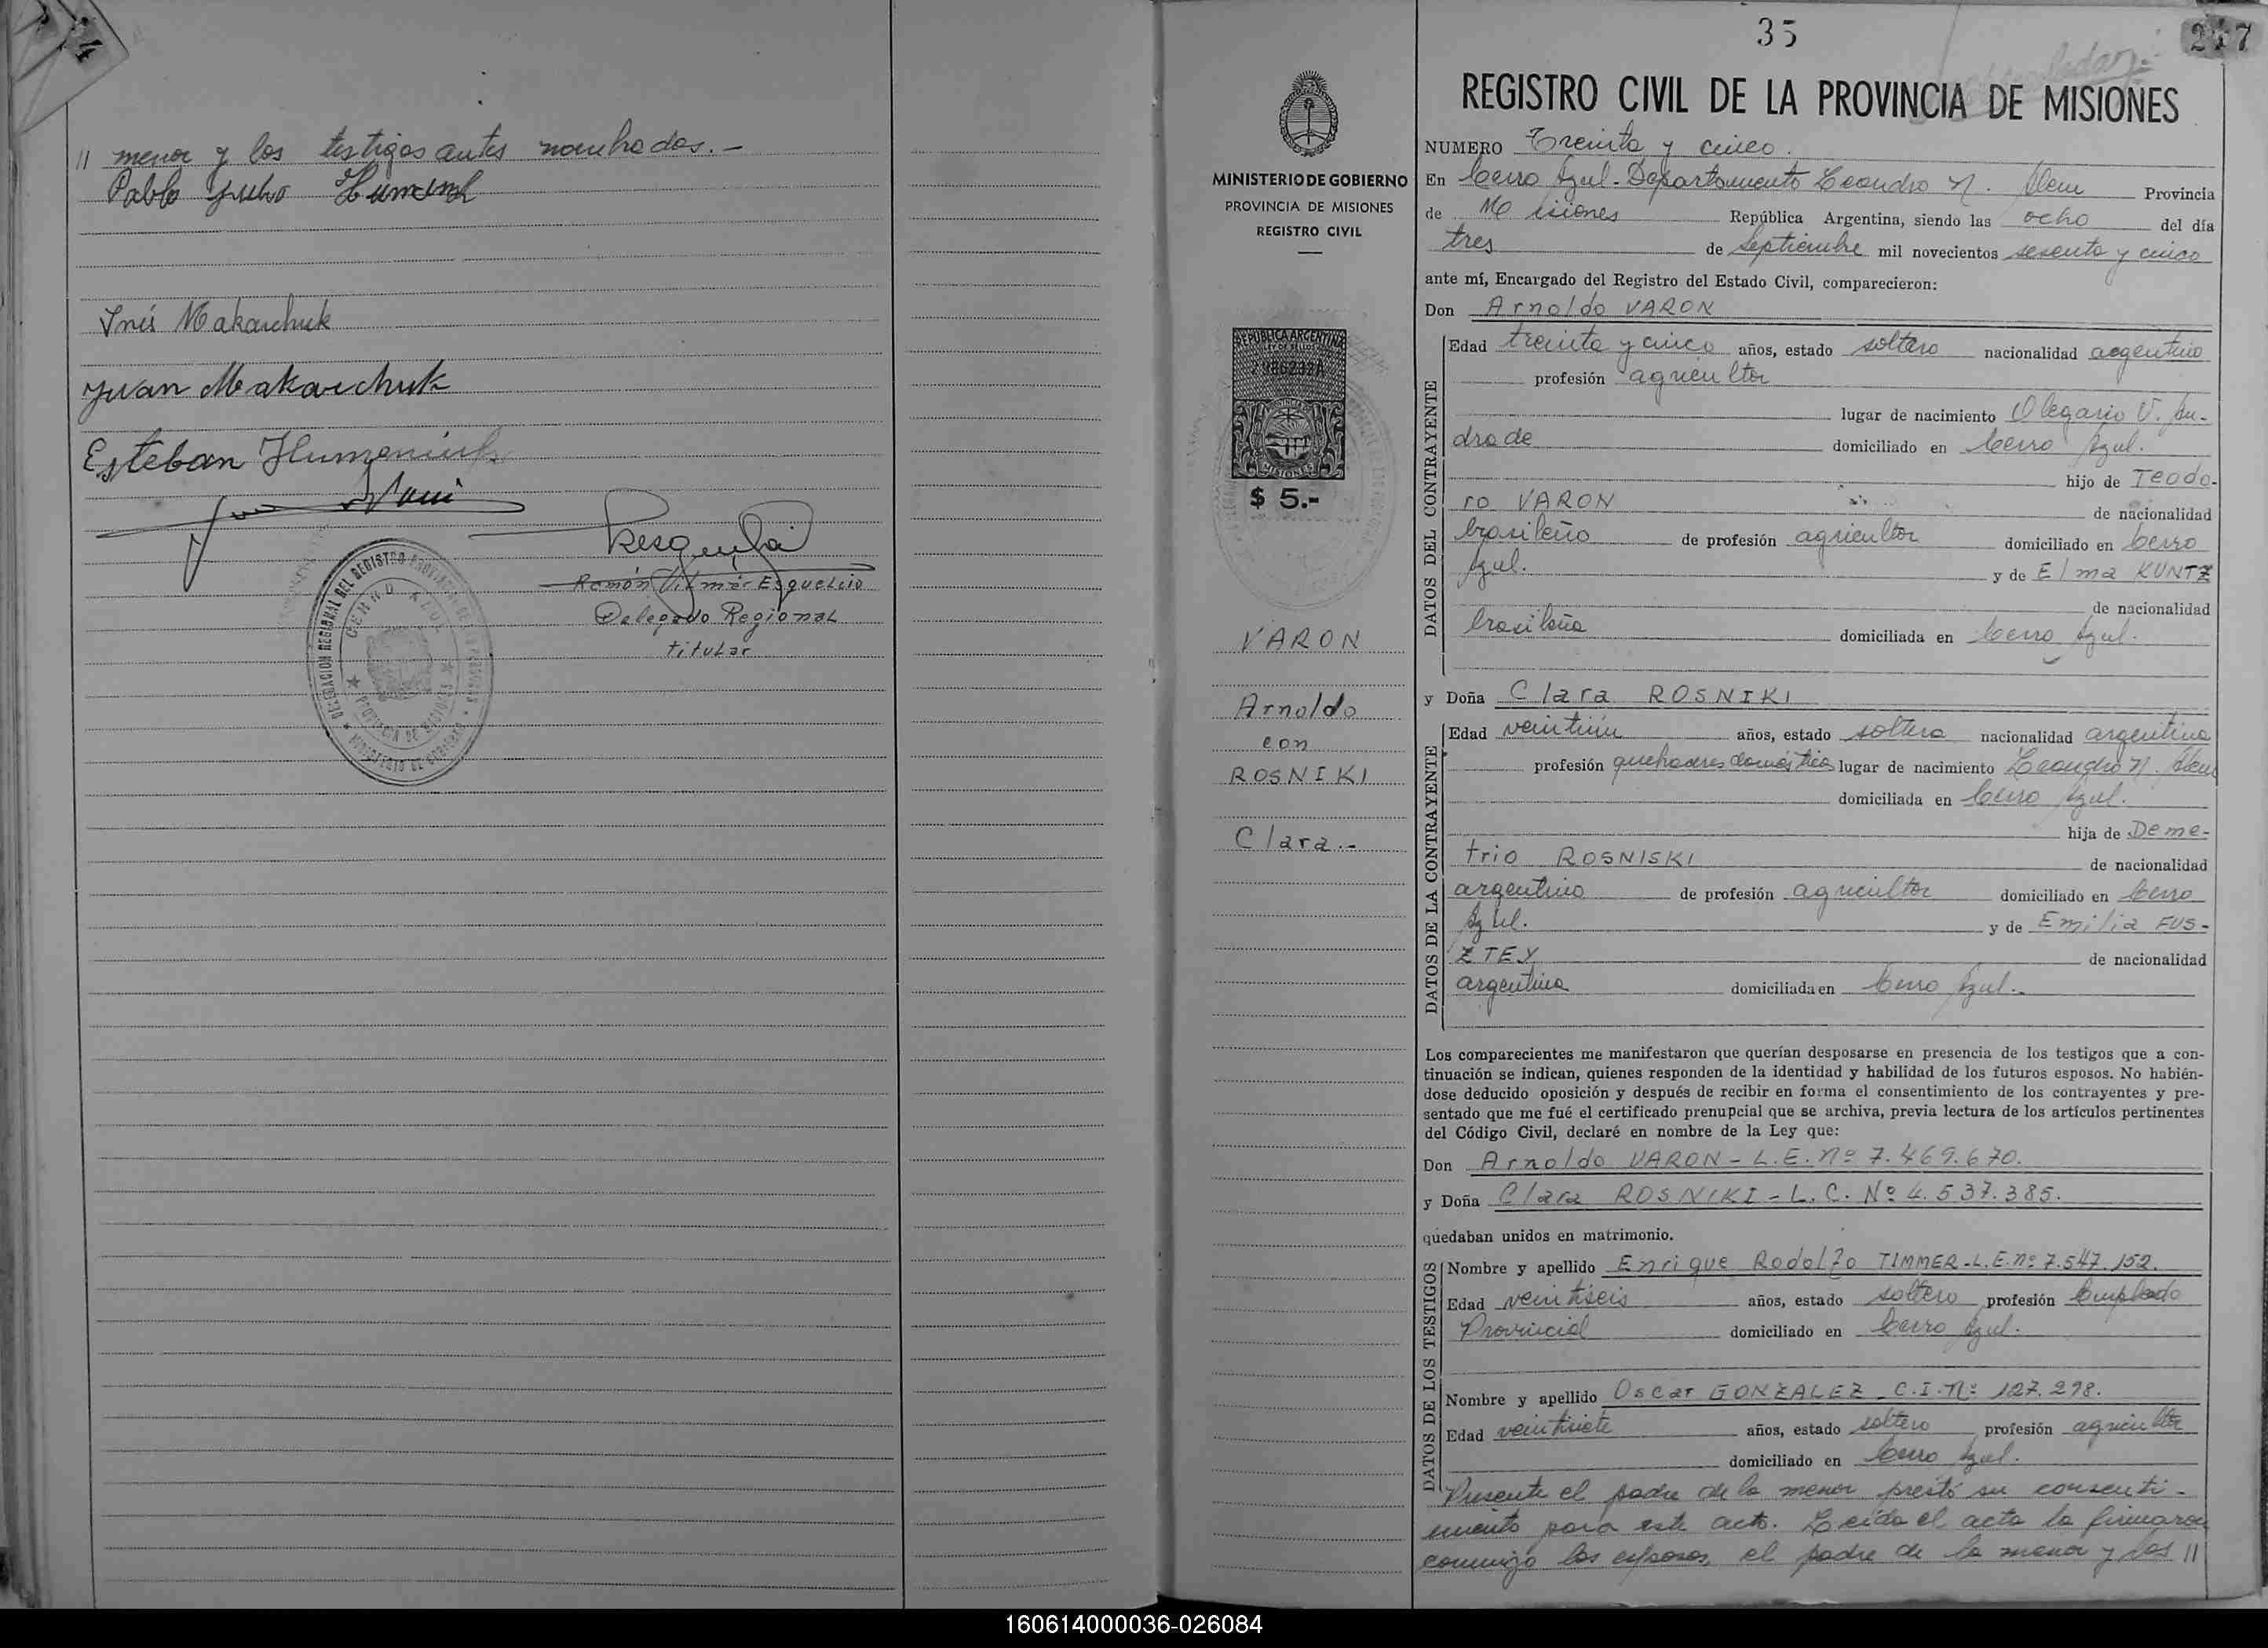 4
// menor y los testigos antes nombrados.-
Pablo Julio
Inés Makarchuk
Juan Makarchuk
Esteban Humeniuk
Ramón Esquelvia
Delegado Regional
titular
DELEGACION REGIONAL DEL REGISTRO
CERRO AZUL
PROVINCIA DE MISIONES
MINISTERIO DE GOBIERNO
35
247
MINISTERIO DE GOBIERNO
PROVINCIA DE MISIONES
REGISTRO CIVIL
REPUBLICA ARGENTINA
LEY DE SELLOS
MISIONES
$ 5.-
VARON
Arnoldo
con
ROSNIKI
Clara.-
REGISTRO CIVIL DE LA PROVINCIA DE MISIONES
NUMERO Treinta y cinco.
En Cerro Azul-Departamento Leandro N. Alem Provincia
de Misiones República Argentina, siendo las ocho del día
tres de Septiembre mil novecientos sesenta y cinco
ante mí, Encargado del Registro del Estado Civil, comparecieron:
Don Arnoldo VARON
DATOS DEL CONTRAYENTE
Edad treinta y cinco años, estado soltero nacionalidad argentino
profesión agricultor
lugar de nacimiento Olegario V. An-
drade domiciliado en Cerro Azul.
hijo de Teodo-
ro VARON de nacionalidad
brasileño de profesión agricultor domiciliado en Cerro
Azul. y de Elma KUNTZ
de nacionalidad
brasileña domiciliada en Cerro Azul.
y Doña Clara ROSNIKI
DATOS DE LA CONTRAYENTE
Edad veintiún años, estado soltera nacionalidad argentina
profesión quehaceres domésticos lugar de nacimiento Leandro N. Alem
domiciliada en Cerro Azul.
hija de Deme-
trio ROSNISKI de nacionalidad
argentino de profesión agricultor domiciliado en Cerro
Azul. y de Emilia FUS-
ZTEY de nacionalidad
argentina domiciliada en Cerro Azul.-
Los comparecientes me manifestaron que querían desposarse en presencia de los testigos que a con-
tinuación se indican, quienes responden de la identidad y habilidad de los futuros esposos. No habién-
dose deducido oposición y después de recibir en forma el consentimiento de los contrayentes y pre-
sentado que me fué el certificado prenupcial que se archiva, previa lectura de los artículos pertinentes
del Código Civil, declaré en nombre de la Ley que:
Don Arnoldo VARON - L.E. Nº 7.469.670.
y Doña Clara ROSNIKI - L.C. Nº 4.537.385.
quedaban unidos en matrimonio.
DATOS DE LOS TESTIGOS
Nombre y apellido Enrique Rodolfo TIMMER-L.E.nº 7.547.152.
Edad veintiseis años, estado soltero profesión Empleado
Provincial domiciliado en Cerro Azul.
Nombre y apellido Oscar GONZALEZ - C.I.Nº 127.298.
Edad veintisiete años, estado soltero profesión agricultor
domiciliado en Cerro Azul.
Presente el padre de la menor prestó su consenti-
miento para este acto. Leída el acta la firmaron
conmigo los esposos, el padre de la menor y los //
160614000036-026084